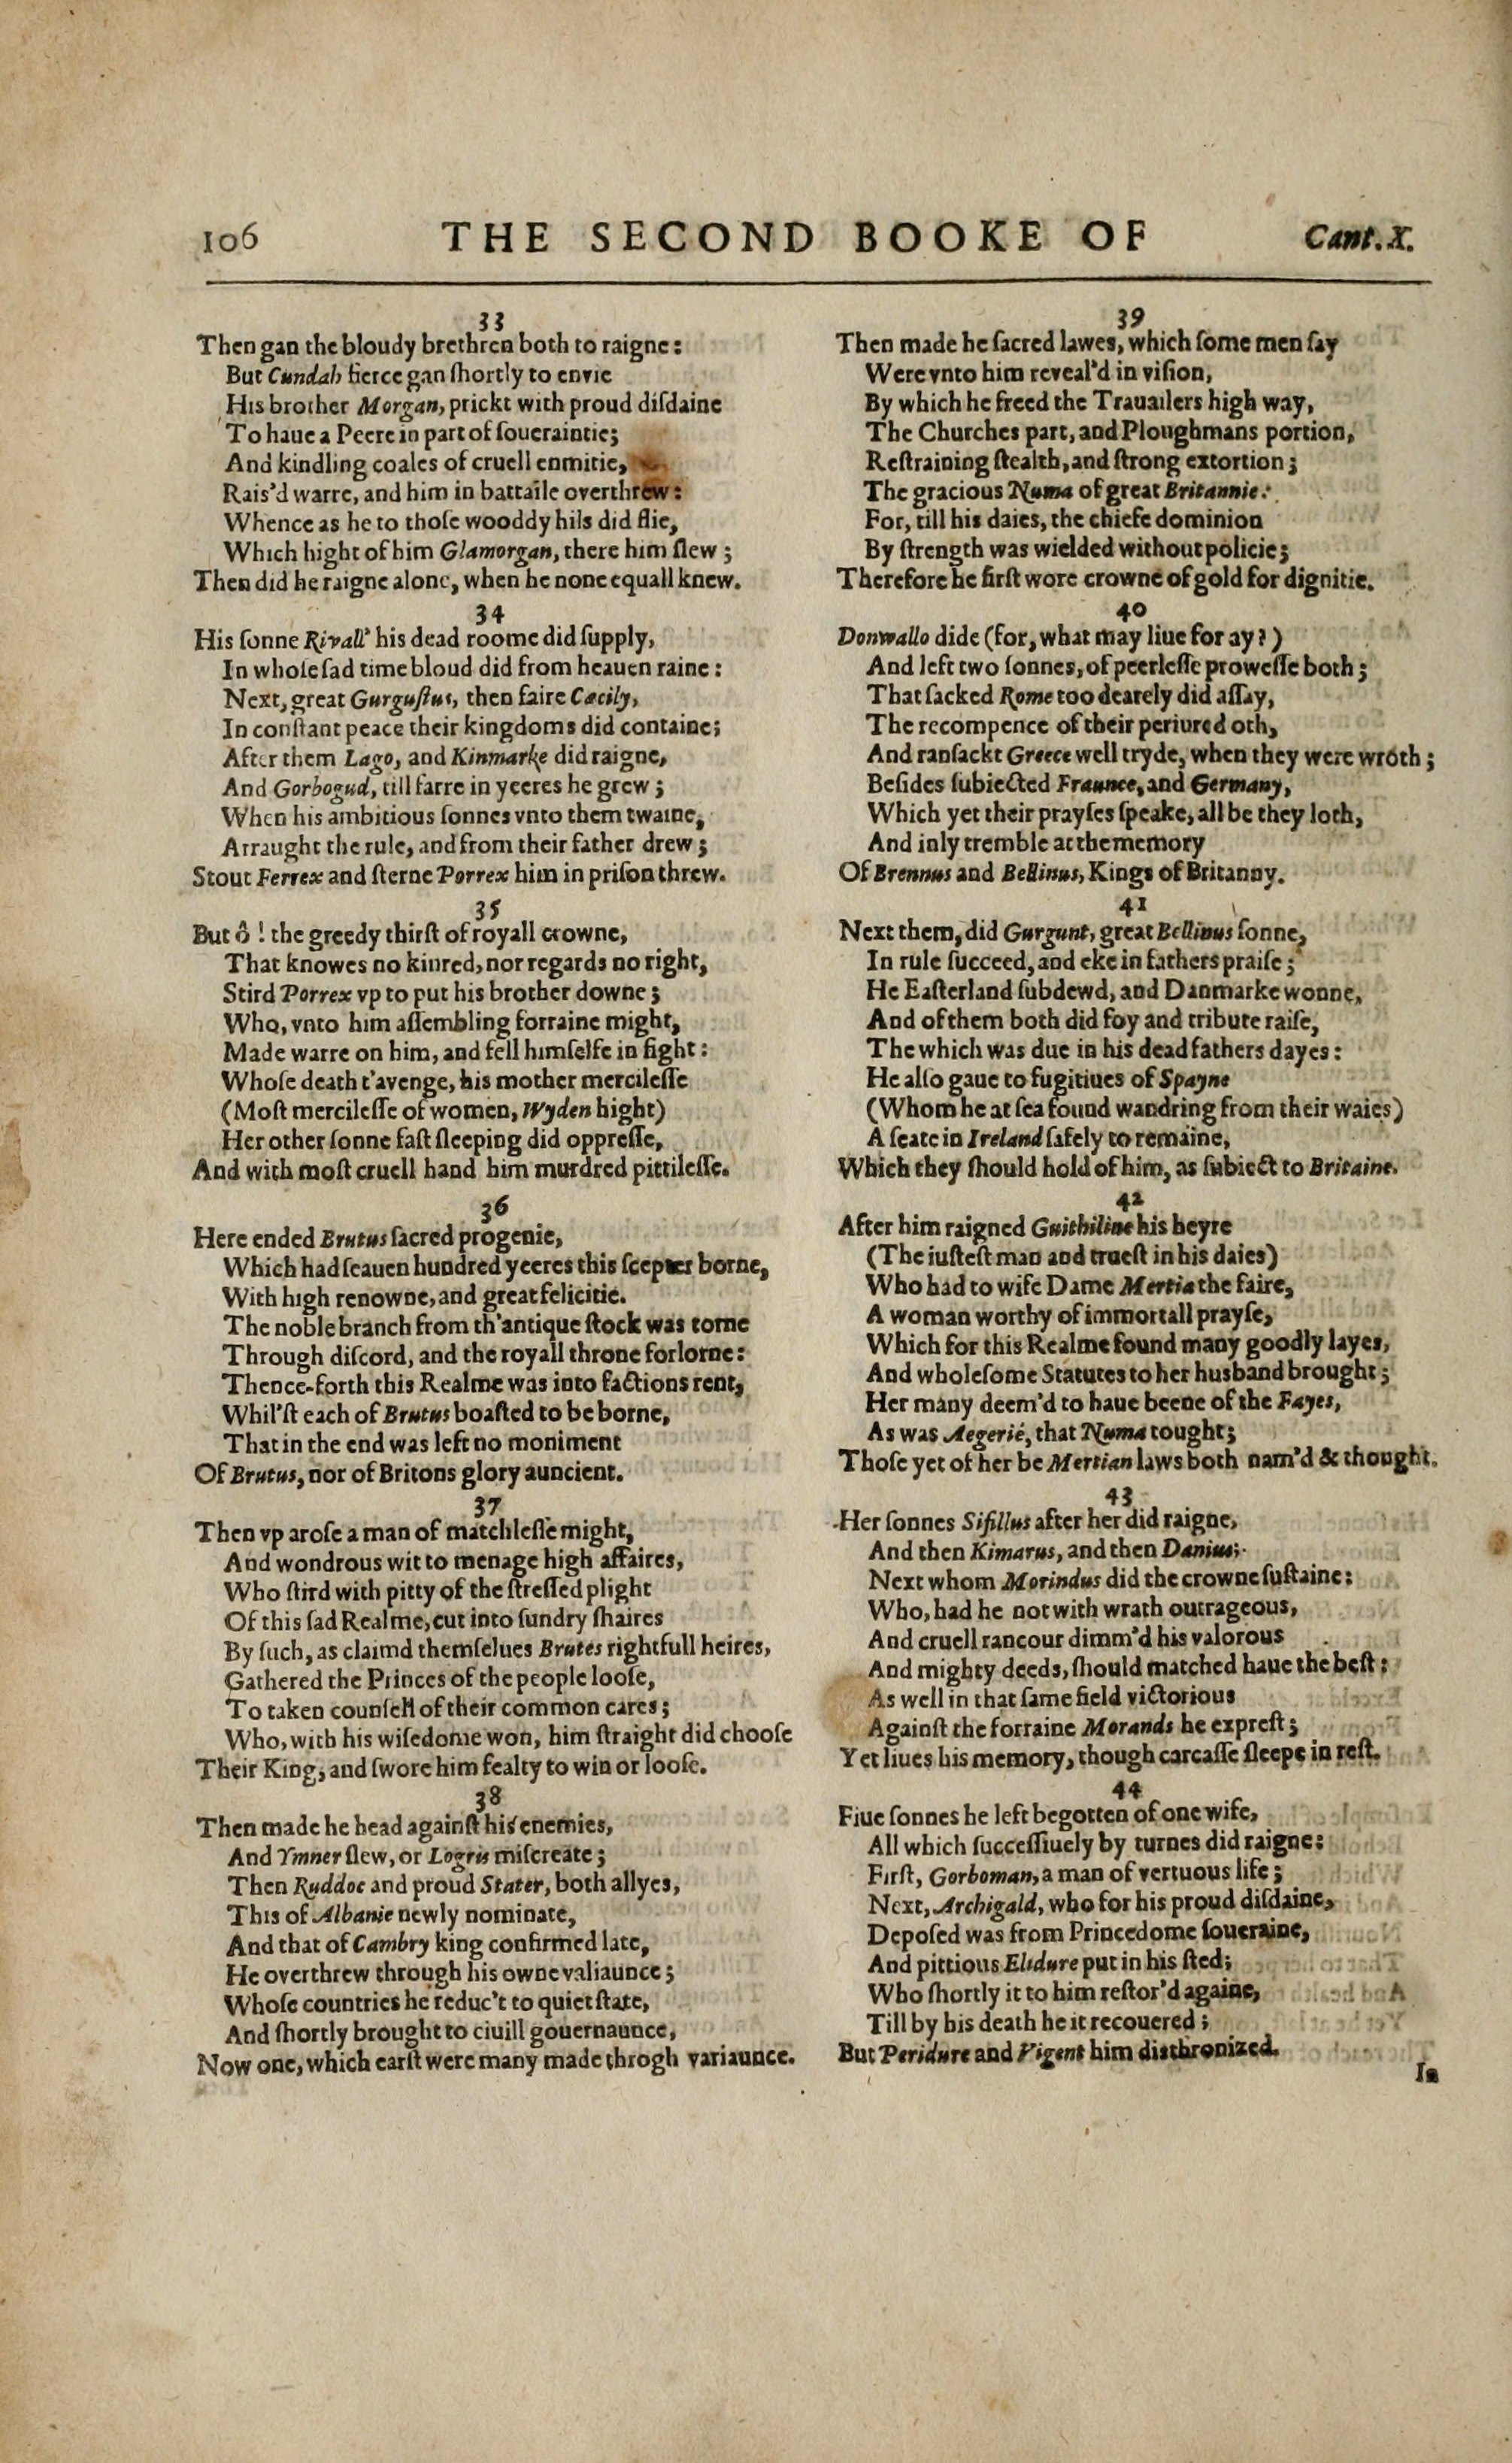 106 THE SECOND BOOKE OF Cant.X.
33
Then gan the bloudy brethren both to raigne:
But Cundah fierce gan ſhortly to envie
His brother Morgan, prickt with proud diſdaine
To haue a Peere in part of ſoueraintie;
And kindling coales of cruell enmitie,
Rais'd warre, and him in battaile overthrew:
Whence as he to thoſe wooddy hils did flie,
Which hight of him Glamorgan, there him ſlew;
Then did he raigne alone, when he none equall knew.
34
His ſonne Rivall' his dead roome did ſupply,
In whoſe ſad time bloud did from heauen raine:
Next, great Gurguſtus, then faire Cæcily,
In conſtant peace their kingdoms did containe;
After them Lago, and Kinmarke did raigne,
And Gorbogud, till farre in yeeres he grew;
When his ambitious ſonnes vnto them twaine,
Arraught the rule, and from their father drew;
Stout Ferrex and ſterne Porrex him in priſon threw.
35
But ô! the greedy thirſt of royall crowne,
That knowes no kinred, nor regards no right,
Stird Porrex vp to put his brother downe;
Who, vnto him aſſembling forraine might,
Made warre on him, and fell himſelfe in fight:
Whoſe death t'avenge, his mother mercileſſe
(Moſt mercileſſe of women, Wyden hight)
Her other ſonne faſt ſleeping did oppreſſe,
And with moſt cruell hand him murdred pittileſſe.
36
Here ended Brutus ſacred progenie,
Which had ſeauen hundred yeeres this ſcepter borne,
With high renowne, and great felicitie.
The noble branch from th'antique ſtock was torne
Through diſcord, and the royall throne forlorne:
Thence-forth this Realme was into factions rent,
Whil'ſt each of Brutus boaſted to be borne,
That in the end was left no moniment
Of Brutus, nor of Britons glory auncient.
37
Then vp aroſe a man of matchleſſe might,
And wondrous wit to menage high affaires,
Who ſtird with pitty of the ſtreſſed plight
Of this ſad Realme, cut into ſundry ſhaires
By ſuch, as claimd themſelues Brutes rightfull heires,
Gathered the Princes of the people looſe,
To taken counſell of their common cares;
Who, with his wiſedome won, him ſtraight did chooſe
Their King, and ſwore him fealty to win or looſe.
38
Then made he head againſt his enemies,
And Ymner ſlew, or Logris miſcreate;
Then Ruddoc and proud Stater, both allyes,
This of Albanie newly nominate,
And that of Cambry king confirmed late,
He overthrew through his owne valiaunce;
Whoſe countries he reduc't to quiet ſtate,
And ſhortly brought to ciuill gouernaunce,
Now one, which earſt were many made throgh variaunce.
39
Then made he ſacred lawes, which ſome men ſay
Were vnto him reveal'd in viſion,
By which he freed the Trauailers high way,
The Churches part, and Ploughmans portion,
Reſtraining ſtealth, and ſtrong extortion;
The gracious Numa of great Britannie:
For, till his daies, the chiefe dominion
By ſtrength was wielded without policie;
Therefore he firſt wore crowne of gold for dignitie.
40
Donwallo dide (for, what may liue for ay?)
And left two ſonnes, of peerleſſe proweſſe both;
That ſacked Rome too dearely did aſſay,
The recompence of their periured oth,
And ranſackt Greece well tryde, when they were wroth;
Beſides ſubiected Fraunce, and Germany,
Which yet their prayſes ſpeake, all be they loth,
And inly tremble at the memory
Of Brennus and Bellinus, Kings of Britanny.
41
Next them, did Gurgunt, great Bellinus ſonne,
In rule ſucceed, and eke in fathers praiſe;
He Eaſterland ſubdewd, and Danmarke wonne,
And of them both did foy and tribute raiſe,
The which was due in his dead fathers dayes:
He alſo gaue to fugitiues of Spayne
(Whom he at ſea found wandring from their waies)
A ſeate in Ireland ſafely to remaine,
Which they ſhould hold of him, as ſubiect to Britaine.
42
After him raigned Guithiline his heyre
(The iuſteſt man and trueſt in his daies)
Who had to wife Dame Mertia the faire,
A woman worthy of immortall prayſe,
Which for this Realme found many goodly layes,
And wholeſome Statutes to her husband brought;
Her many deem'd to haue beene of the Fayes,
As was Aegerié, that Numa tought;
Thoſe yet of her be Mertian laws both nam'd & thought.
43
Her ſonnes Siſillus after her did raigne,
And then Kimarus, and then Danius;
Next whom Morindus did the crowne ſuſtaine:
Who, had he not with wrath outrageous,
And cruell rancour dimm'd his valorous
And mighty deeds, ſhould matched haue the beſt:
As well in that ſame field victorious
Againſt the forraine Morands he expreſt;
Yet liues his memory, though carcaſſe ſleepe in reſt.
44
Fiue ſonnes he left begotten of one wife,
All which ſucceſſiuely by turnes did raigne:
Firſt, Gorboman, a man of vertuous life;
Next, Archigald, who for his proud diſdaine,
Depoſed was from Princedome ſoueraine,
And pittious Elidure put in his ſted;
Who ſhortly it to him reſtor'd againe,
Till by his death he it recouered;
But Peridure and Vigent him disthronized.
In